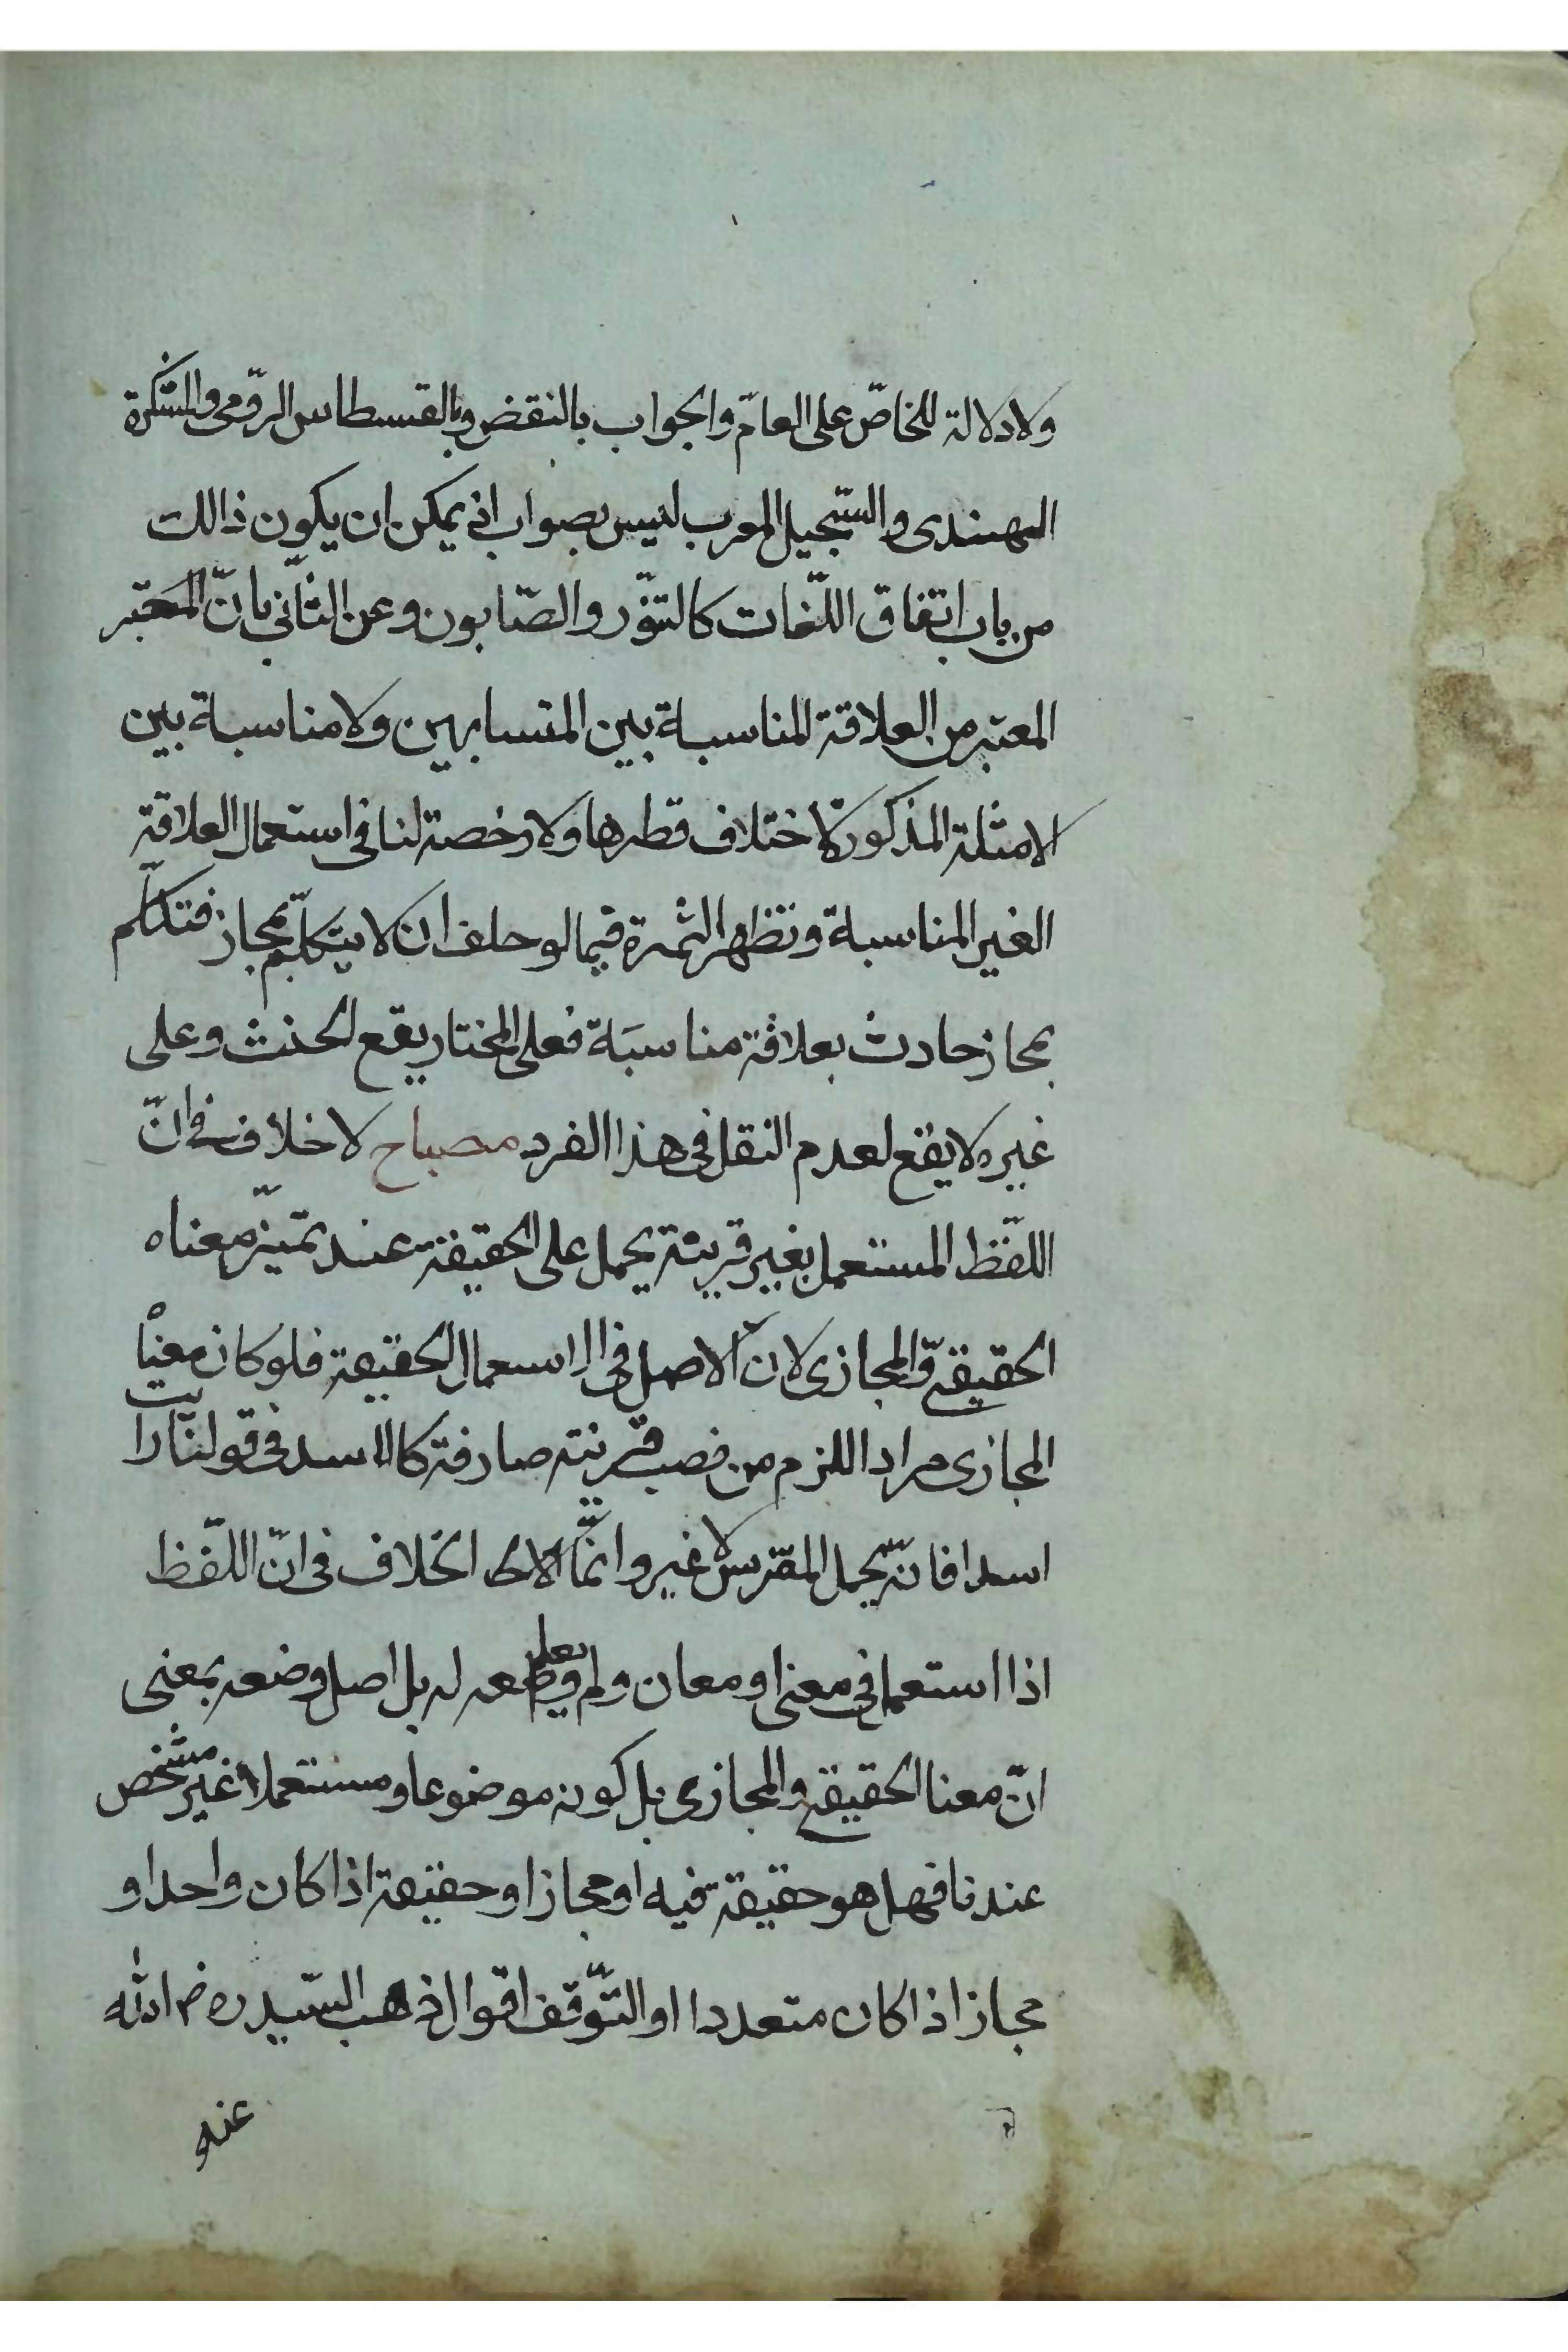 ولا دلالة للخاصّ على العامّ والجواب بالنقض وبالقسطاس الرّومى والمشكوة
الهندى والسّجيل المعرب ليس بصواب اذ يمكن ان يكون ذالك
من باب اتفاق اللّغات كالتنّور والصّابون وعن الثّاني بانّ المعتبر
المعتبر من العلاقة المناسبة بين المتسابهين ولا مناسبة بين
الامثلة المذكورة لاختلاف قطرها ولا رخصة لنا في استعمال العلاقة
الغير المناسبة وتظهر الثمرة فيما لو حلف ان لا يتكلّم بمجاز فتكلّم
بمجاز حادث بعلاقة مناسبة فعلى المختار يقع الحنث وعلى
غيره لا يقع لعدم النقل في هذا الفرد مصباح لا خلاف في انّ
اللّفظ المستعمل بغير قرينة يحمل على الحقيقة عند تميّز معناه
الحقيقي والمجازى لانّ الاصل في الاسعمال الحقيقة فلو كان معناه
المجازى مرادا للزم من نصب قرينة صارفة كالاسد في قولنا رايت
اسدا فانّه يحمل المفترس لا غير وانّما الخلاف في انّ اللّفظ
اذا استعمل في معنى او معان ولم يعلم وضعه له بل اصل وضعه بمعنى
انّ معنا الحقيقي والمجازى بل كونه موضوعا ومستعملا غير مشخص
عندنا فهل هو حقيقة فيه او مجاز او حقيقة اذا كان واحدا و
مجاز اذا كان متعددا او التّوقف اقوال ذهب السّيد رض الله
عنه